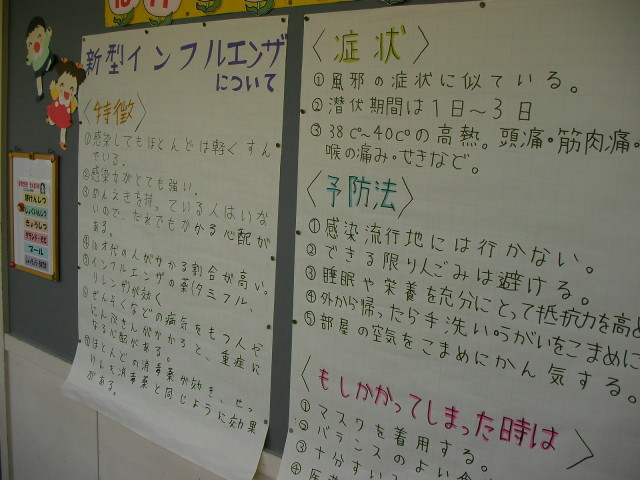 新型インフルエンザ
について
〈特徴〉
①感染してもほとんどは軽くすん
でいる。
②感染力がとても強い。
③めんえきを持っている人はいな
いので、だれでもかかる心配が
ある。
④10才代の人がかかる割合が高い。
⑤インフルエンザの薬(タミフル、
リレンザ)が効く
⑥ぜんそくなどの病気をもつ人や
にんぷさんがかかると、重症に
なる心配がある。
⑦ほとんどの消毒薬が効き、せっ
けんも消毒薬と同じように効果
がある。
〈症状〉
①風邪の症状に似ている。
②潜伏期間は1日~3日
③38c°~40c°の高熱。頭痛・筋肉痛・
喉の痛み・せきなど。
〈予防法〉
①感染流行地には行かない。
②できる限り人ごみは避ける。
③睡眠や栄養を充分にとって抵抗力を高
④外から帰ったら手洗い・うがいをこまめに
⑤部屋の空気をこまめにかん気する。
〈もしかかってしまった時は〉
①マスクを着用する。
②バランスのよい食
③十分すい
④医
ほけんしつ
きょうしつ
プール